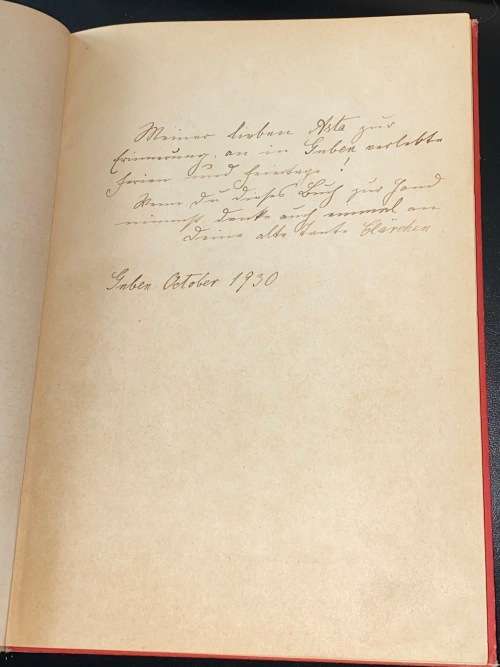 Meiner lieben Asta zur
Erinnerung, an in Guben verlebte
Ferien und Feiertage!
Wenn Du dieses Buch zur Hand
nimmst, denke auch einmal an
Deine alte Tante Clärchen
Guben October 1930